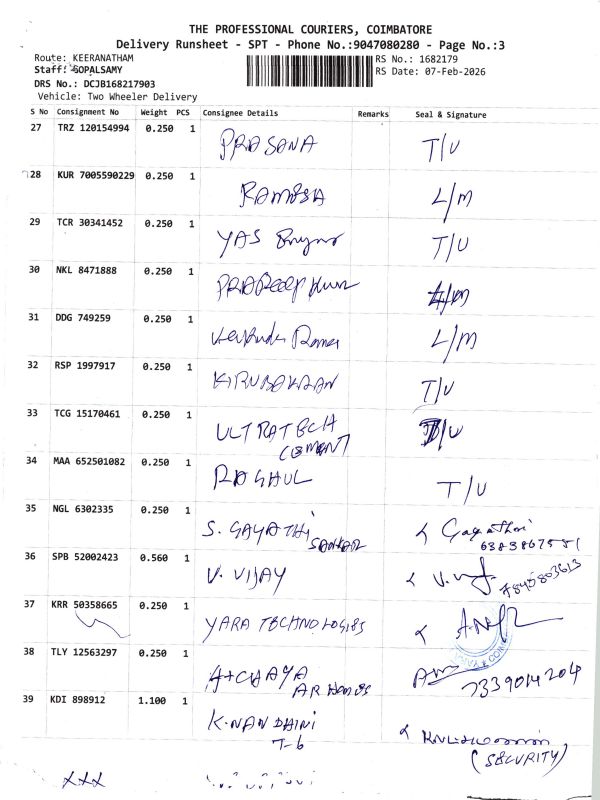 THE PROFESSIONAL COURIERS, COIMBATORE
Delivery Runsheet - SPT - Phone No.:9047080280 - Page No.:3
Route: KEERANATHAM
Staff: GOPALSAMY
DRS No.: DCJB168217903
Vehicle: Two Wheeler Delivery
RS No.: 1682179
RS Date: 07-Feb-2026
S No Consignment No Weight PCS Consignee Details Remarks Seal & Signature
27 TRZ 120154994 0.250 1 PRASANA T/U
28 KUR 7005590229 0.250 1 L/M
29 TCR 30341452 0.250 1 YAS T/U
30 NKL 8471888 0.250 1 PRADeep L/M
31 DDG 749259 0.250 1 L/M
32 RSP 1997917 0.250 1 KIRUBAKRAN T/U
33 TCG 15170461 0.250 1 ULTRATECH T/U
CEMENT
34 MAA 652501082 0.250 1 RAGHUL T/U
35 NGL 6302335 0.250 1 S. GAYATHi
SANKAR
36 SPB 52002423 0.560 1 V. VIJAY
7845803613
37 KRR 50358665 0.250 1 YARA TECHNOLOGIES
38 TLY 12563297 0.250 1 ATCHAYA
7339014204
39 KDI 898912 1.100 1 K.NANDHINI
T-6
(SECURITY)